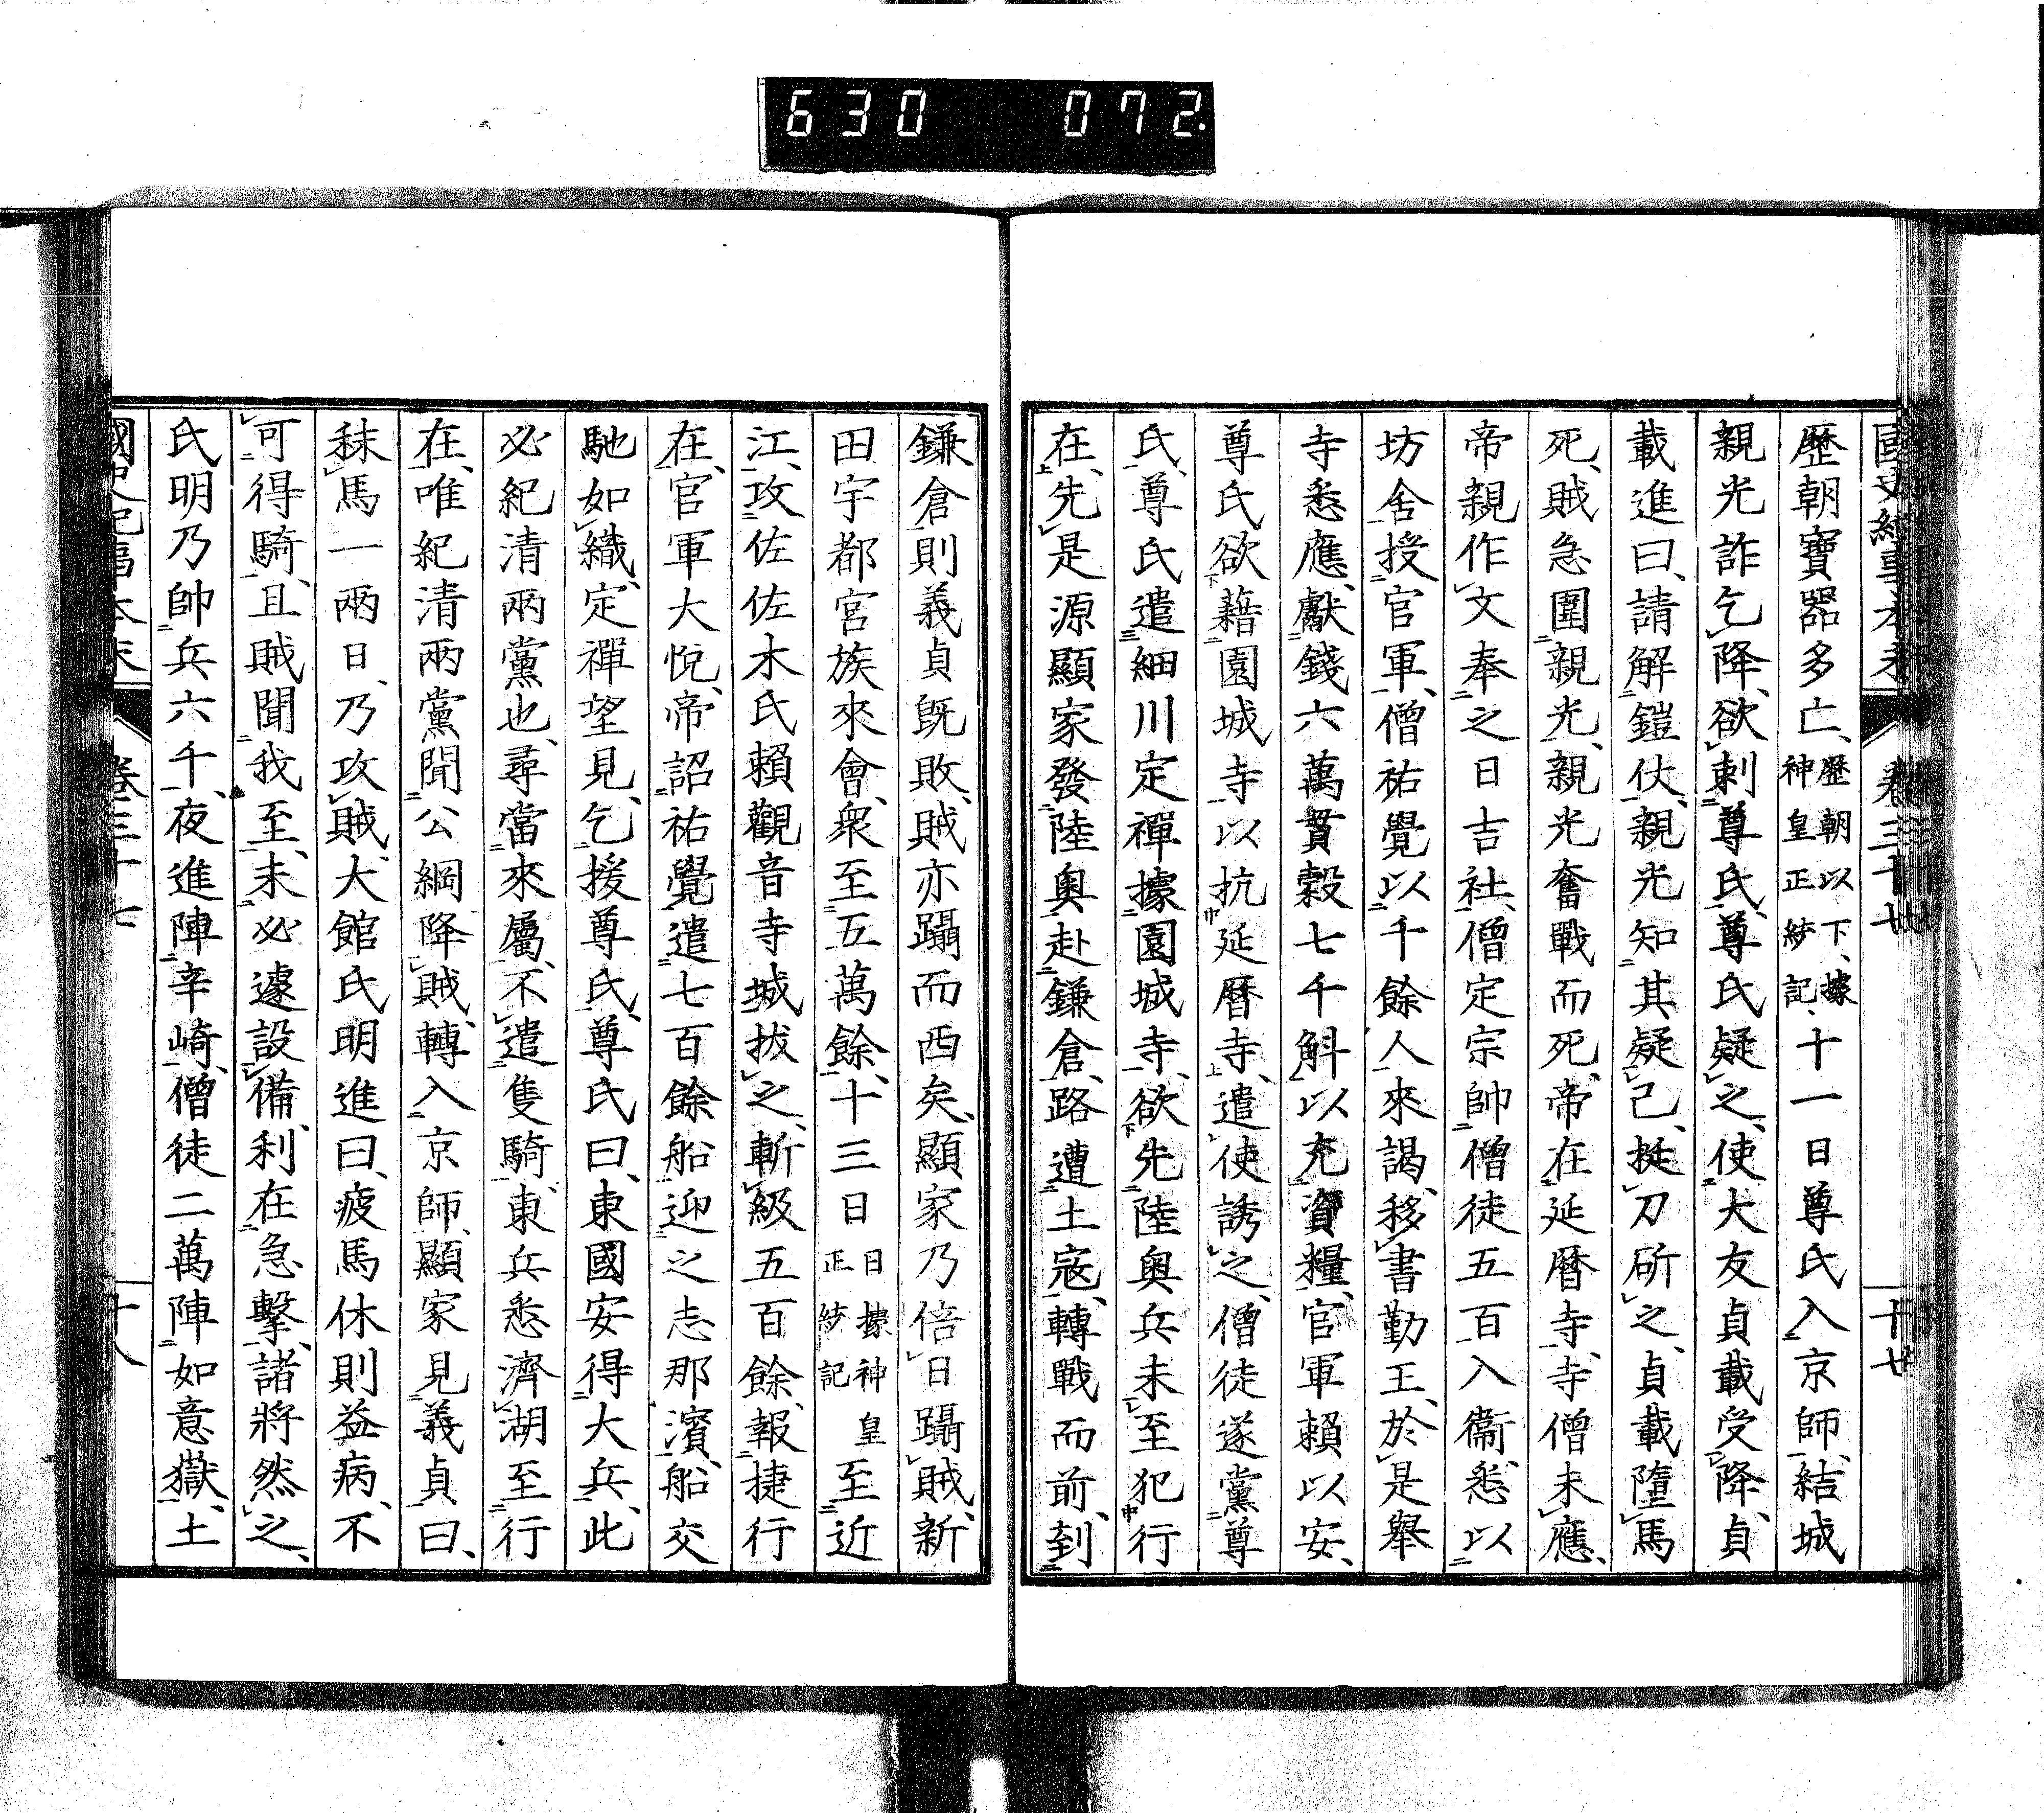 630 072.
歷朝寶器多亡、歷朝以下、據神皇正綂記、十一日尊氏入京師、結城
親光詐乞降、欲刺尊氏、尊氏疑之、使大友貞載受降、貞
載進曰、請解鎧仗、親光知其疑己、挺刀斫之、貞載墮馬
死、賊急圍親光、親光奮戰而死、帝在延曆寺、寺僧未應、
帝親作文奉之日吉社、僧定宗帥僧徒五百入衞、悉以
坊舍授官軍、僧祐覺以千餘人來謁、移書勤王、於是舉
寺悉應、獻錢六萬貫穀七千斛以充資糧、官軍賴以安、
尊氏欲藉園城寺以抗延曆寺、遣使誘之、僧徒遂黨尊
氏、尊氏遣細川定禪據園城寺、欲先陸奧兵未至犯行
在、先是源顯家發陸奧赴鎌倉、路遭土寇、轉戰而前、到
鎌倉則義貞既敗、賊亦躡而西矣、顯家乃倍日躡賊、新
田宇都宮族來會、衆至五萬餘、十三日日據神皇正綂記至近
江、攻佐佐木氏賴觀音寺城拔之、斬級五百餘、報捷行
在、官軍大悅、帝詔祐覺遣七百餘船迎之志那濱、船交
馳如織、定禪望見、乞援尊氏、尊氏曰、東國安得大兵、此
必紀清兩黨也、尋當來屬、不遣隻騎、東兵悉濟湖至行
在、唯紀清兩黨聞公綱降賊、轉入京師、顯家見義貞曰、
秣馬一兩日、乃攻賊、大館氏明進曰、疲馬休則益病、不
可得騎、且賊聞我至、未必遽設備、利在急擊、諸將然之、
氏明乃帥兵六千、夜進陣辛崎、僧徒二萬陣如意嶽、土
卷三十七 十八